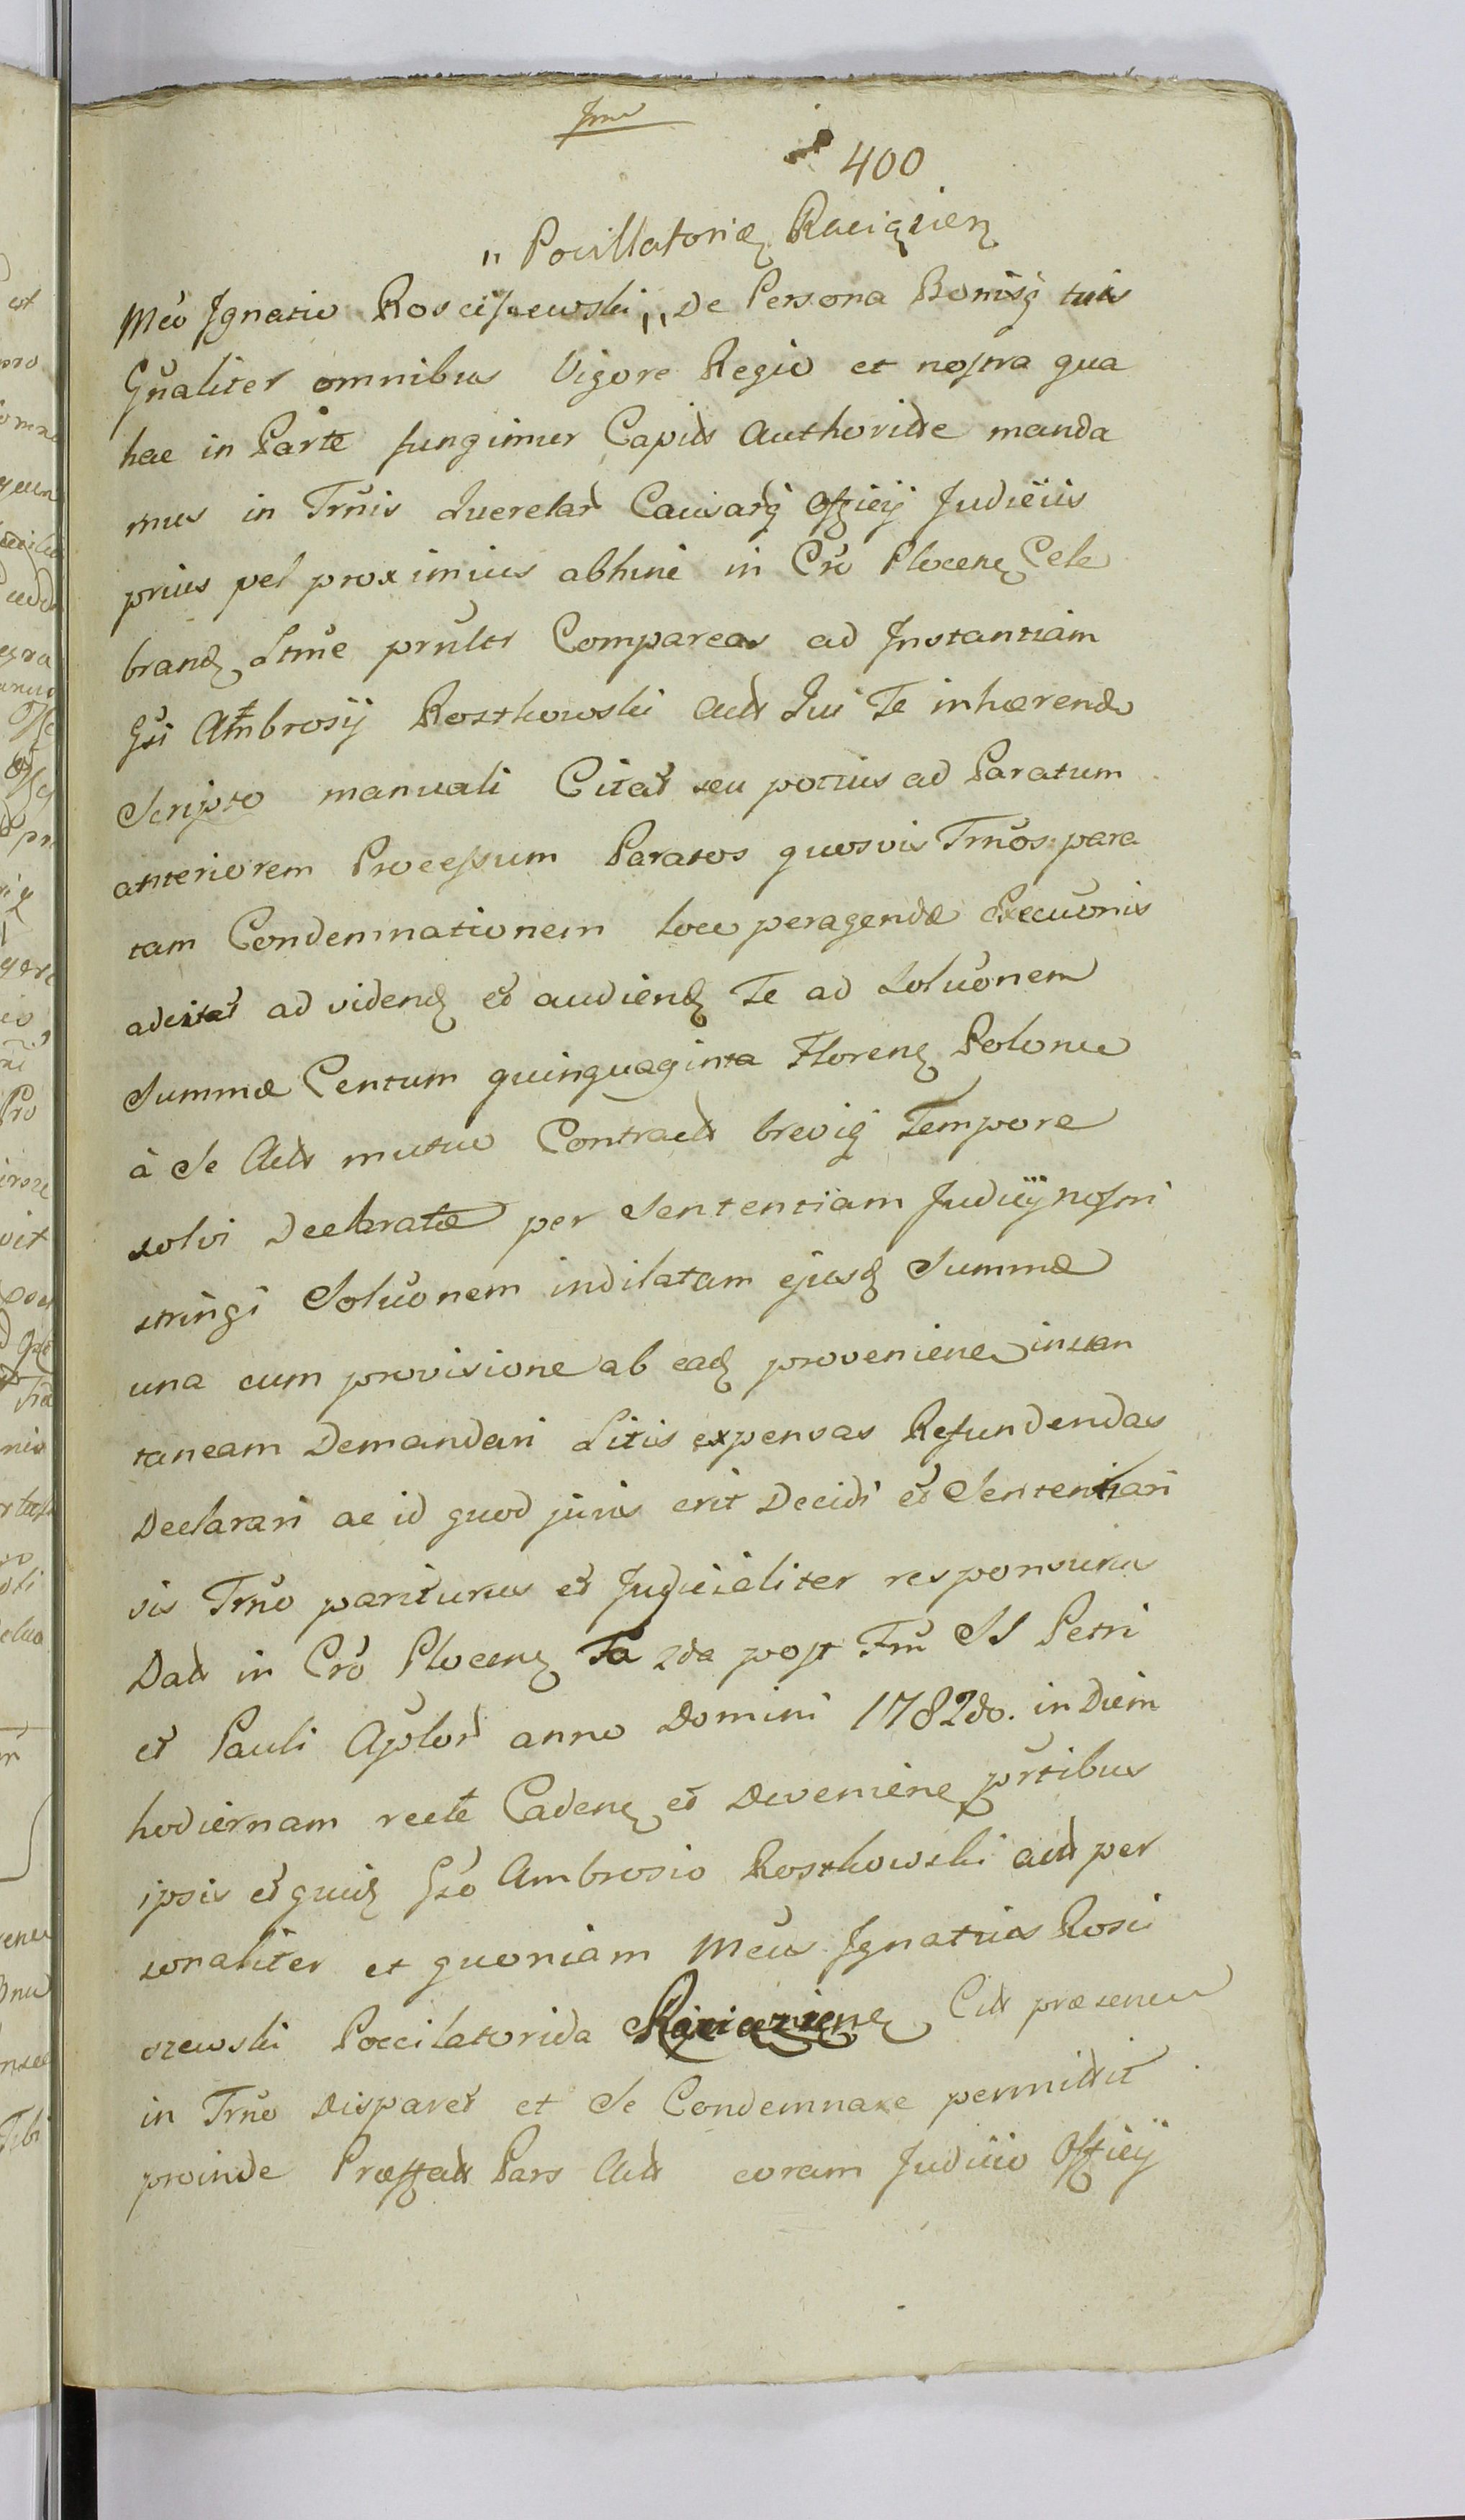 400
" Pocillatoridæ Raciązien
Mco Ignatio Rosciszewski " De Persona Bonisq tuis
Gnaliter omnibus Vigore Regio et nostra qua
hac in Parte fungimur Capitt Authoritte manda
mus in Trnis Querelar Causarq Officij Judicijs
prius vel proximius abhinc in Cro Plocen Cele
brand Ltme prulr Compareas ad Instantiam
Gsi Ambrosij Roszkowski Actt Qui Te inhærendo
Scripto manuali Citat seu potius ad Paratum
anteriorem Processum Paratos quosvis Trnos para
tam Condemnationem loco peragendæ Execuonis
adcitat ad vidend et audiend Te ad Soluonem
Summæ Centum quinquaginta Floren Polon
à Se Actt mutuo Contractt breviq Tempore
solvi Declaratæ per Sententiam Judicij nostri
stringi Soluonem indilatam ejusd Summæ
una cum provisione ab ead provenien instan
taneam Demandari Litis expensas Refundendas
Declarari ac id quod juris erit Decidi et Sententiari
sis Trno pariturus et Judicialiter responsurus
Datt in Cro Plocen Fa 2da post Fm SS Petri
et Pauli Aplor anno Domini 1782do. in Diem
hodiernam recte Caden et Devenien prtibus
ipsis et quid Gso Ambrosio Roszkowski actt per
sonaliter et quoniam Mcus Ignatius Rosci
szewski Poccilatorida Raciązien Citt præsenn
in Trno Disparet et Se Condemnare permittit
proinde Præffatt Pars Actt coram Judicio Officij